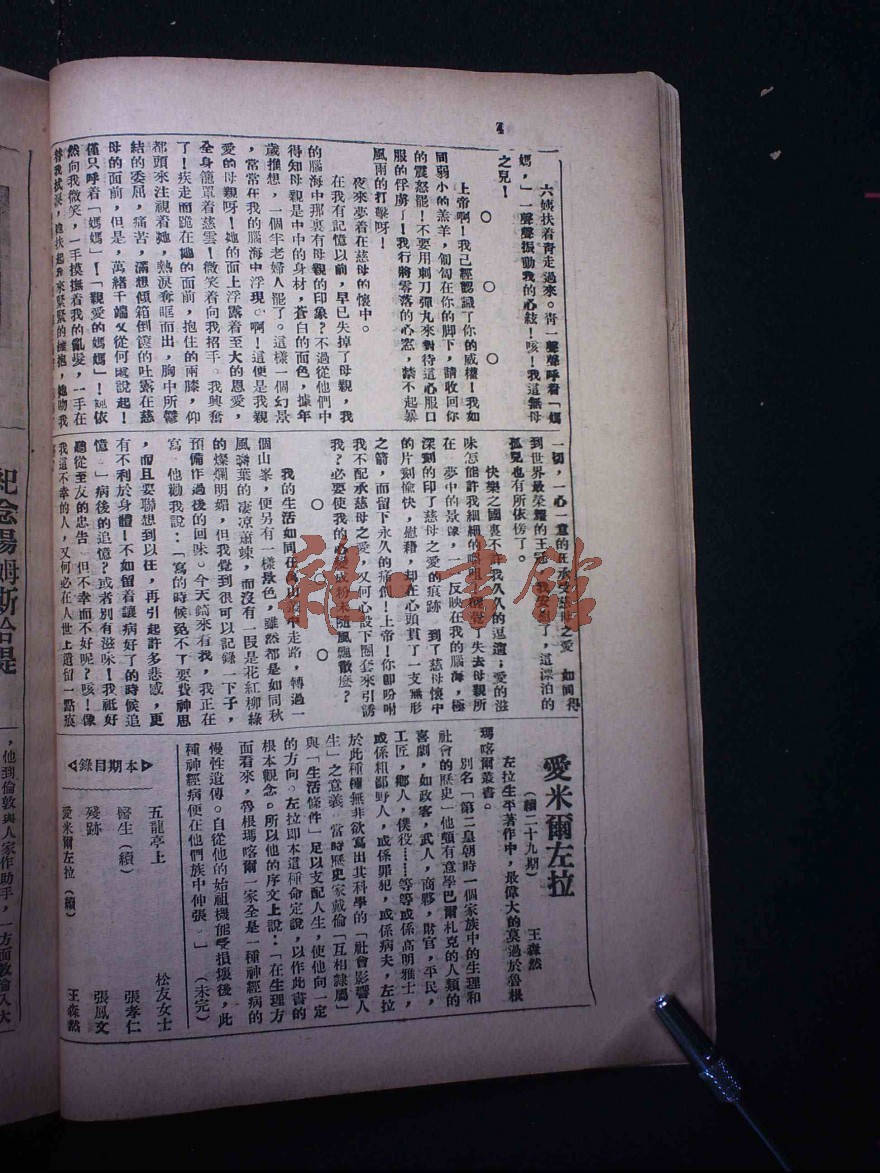 4
六姨扶着青走過來。青一聲聲呼着「媽
媽，」一聲聲振動我的心絃！咳！我這無母
之兒！
○　○　○
上帝啊！我已經認識了你的威權！我如
同弱小的羔羊，匍匐在你的脚下，請收回你
的震怒罷！不要用刺刀彈丸來對待這心服口
服的俘虜了！我行將零落的心窩，禁不起暴
風雨的打擊呀！
夜來夢着在慈母的懷中。
在我有記憶以前，早已失掉了母親，我
的腦海中那裏有母親的印象？不過從他們中
得知母親是中中的身材，蒼白的面色，據年
歲推想，一個半老婦人罷了。這樣一個幻景
，常常在我的腦海中浮現。啊！這便是我親
愛的母親呀！她的面上浮露着至大的恩愛，
全身籠罩着慈雲！微笑着向我招手。我興奮
了！疾走而跪在她的面前，抱住的兩膝，仰
都頭來注視着她，熱淚奪眶而出，胸中所鬱
結的委屈，痛苦，滿想傾箱倒篋的吐露在慈
母的面前，但是，萬緒千端又從何處說起！
僅只呼着「媽媽」！「親愛的媽媽」！她依
然向我微笑，一手摸撫着我的亂髮，一手在
替我拭淚，她扶起我來緊緊的擁抱，她吻我
一切，一心一意的在承受慈母之愛　如同得
到世界最榮耀的王冠　我安慰了，這漂泊的
孤兒也有所依傍了。
快樂之國裏不許我久久的逗遛；愛的滋
味怎能許我細細的咀嚼
在　夢中的景像，　反映在我的腦海，極
深刻的印了慈母之愛的痕跡　到了慈母懷中
的片刻愉快，慰藉，却在心頭貫了一支無形
之箭，而留下永久的痛創！上帝！你卽吩咐
我不配承慈母之愛，又何心設下圈套來引誘
我？必要使我的心變成粉末隨風飄散麽？
○　○　○
我的生活如同在走路，轉過一
個山峯，便另有一樣景色，雖然都是如同秋
風落葉的凄凉蕭竦，而沒有一段是花紅柳綠
的燦爛明媚，但我覺到很可以記錄一下子，
預備作過後的回味。今天錡來有我，我正在
寫　他勸我說：「寫的時候免不了要費神思
，而且要聯想到以往，再引起許多悲感，更
有不利於身體！不如留着讓病好了的時候追
憶。」病後的追憶？或者別有滋味！我祗好
聽從至友的忠告　但不幸而不好呢？咳！像
我這不幸的人，又何必在人世上遺留一點痕
愛米爾左拉
（續二十九期）　王森然
左拉生平著作中，最偉大的莫過於魯根
瑪喀爾叢書。
別名「第二皇朝時一個家族中的生理和
社會的歷史」他頗有意學巴爾札克的人類的
喜劇，如政客，武人，商夥，財官，平民，
工匠，鄕人，僕役……等等或係高明雅士，
或係粗鄙野人，或係罪犯，或係病夫，左拉
於此種種無非欲寫出其科學的「社會影響人
生」之意義　當時歷史家戴倫「互相隸屬」
與「生活條件」足以支配人生，使他向一定
的方向。左拉即本這種命定說，以作此書的
根本觀念。所以他的序文上說：「在生理方
面看來，魯根瑪喀爾一家全是一種神經病的
慢性遺傳。自從他的始祖機能受損壞後，此
種神經病便在他們族中伸張。」　（未完）
◁錄目期本▷
五龍亭上　松友女士
醫生（續）　張孝仁
殘跡　張鳳文
愛米爾左拉（續）　王森然
紀念湯姆斯哈提
，他到倫敦與人家作助手，一方面敎倫入大
雜·書館